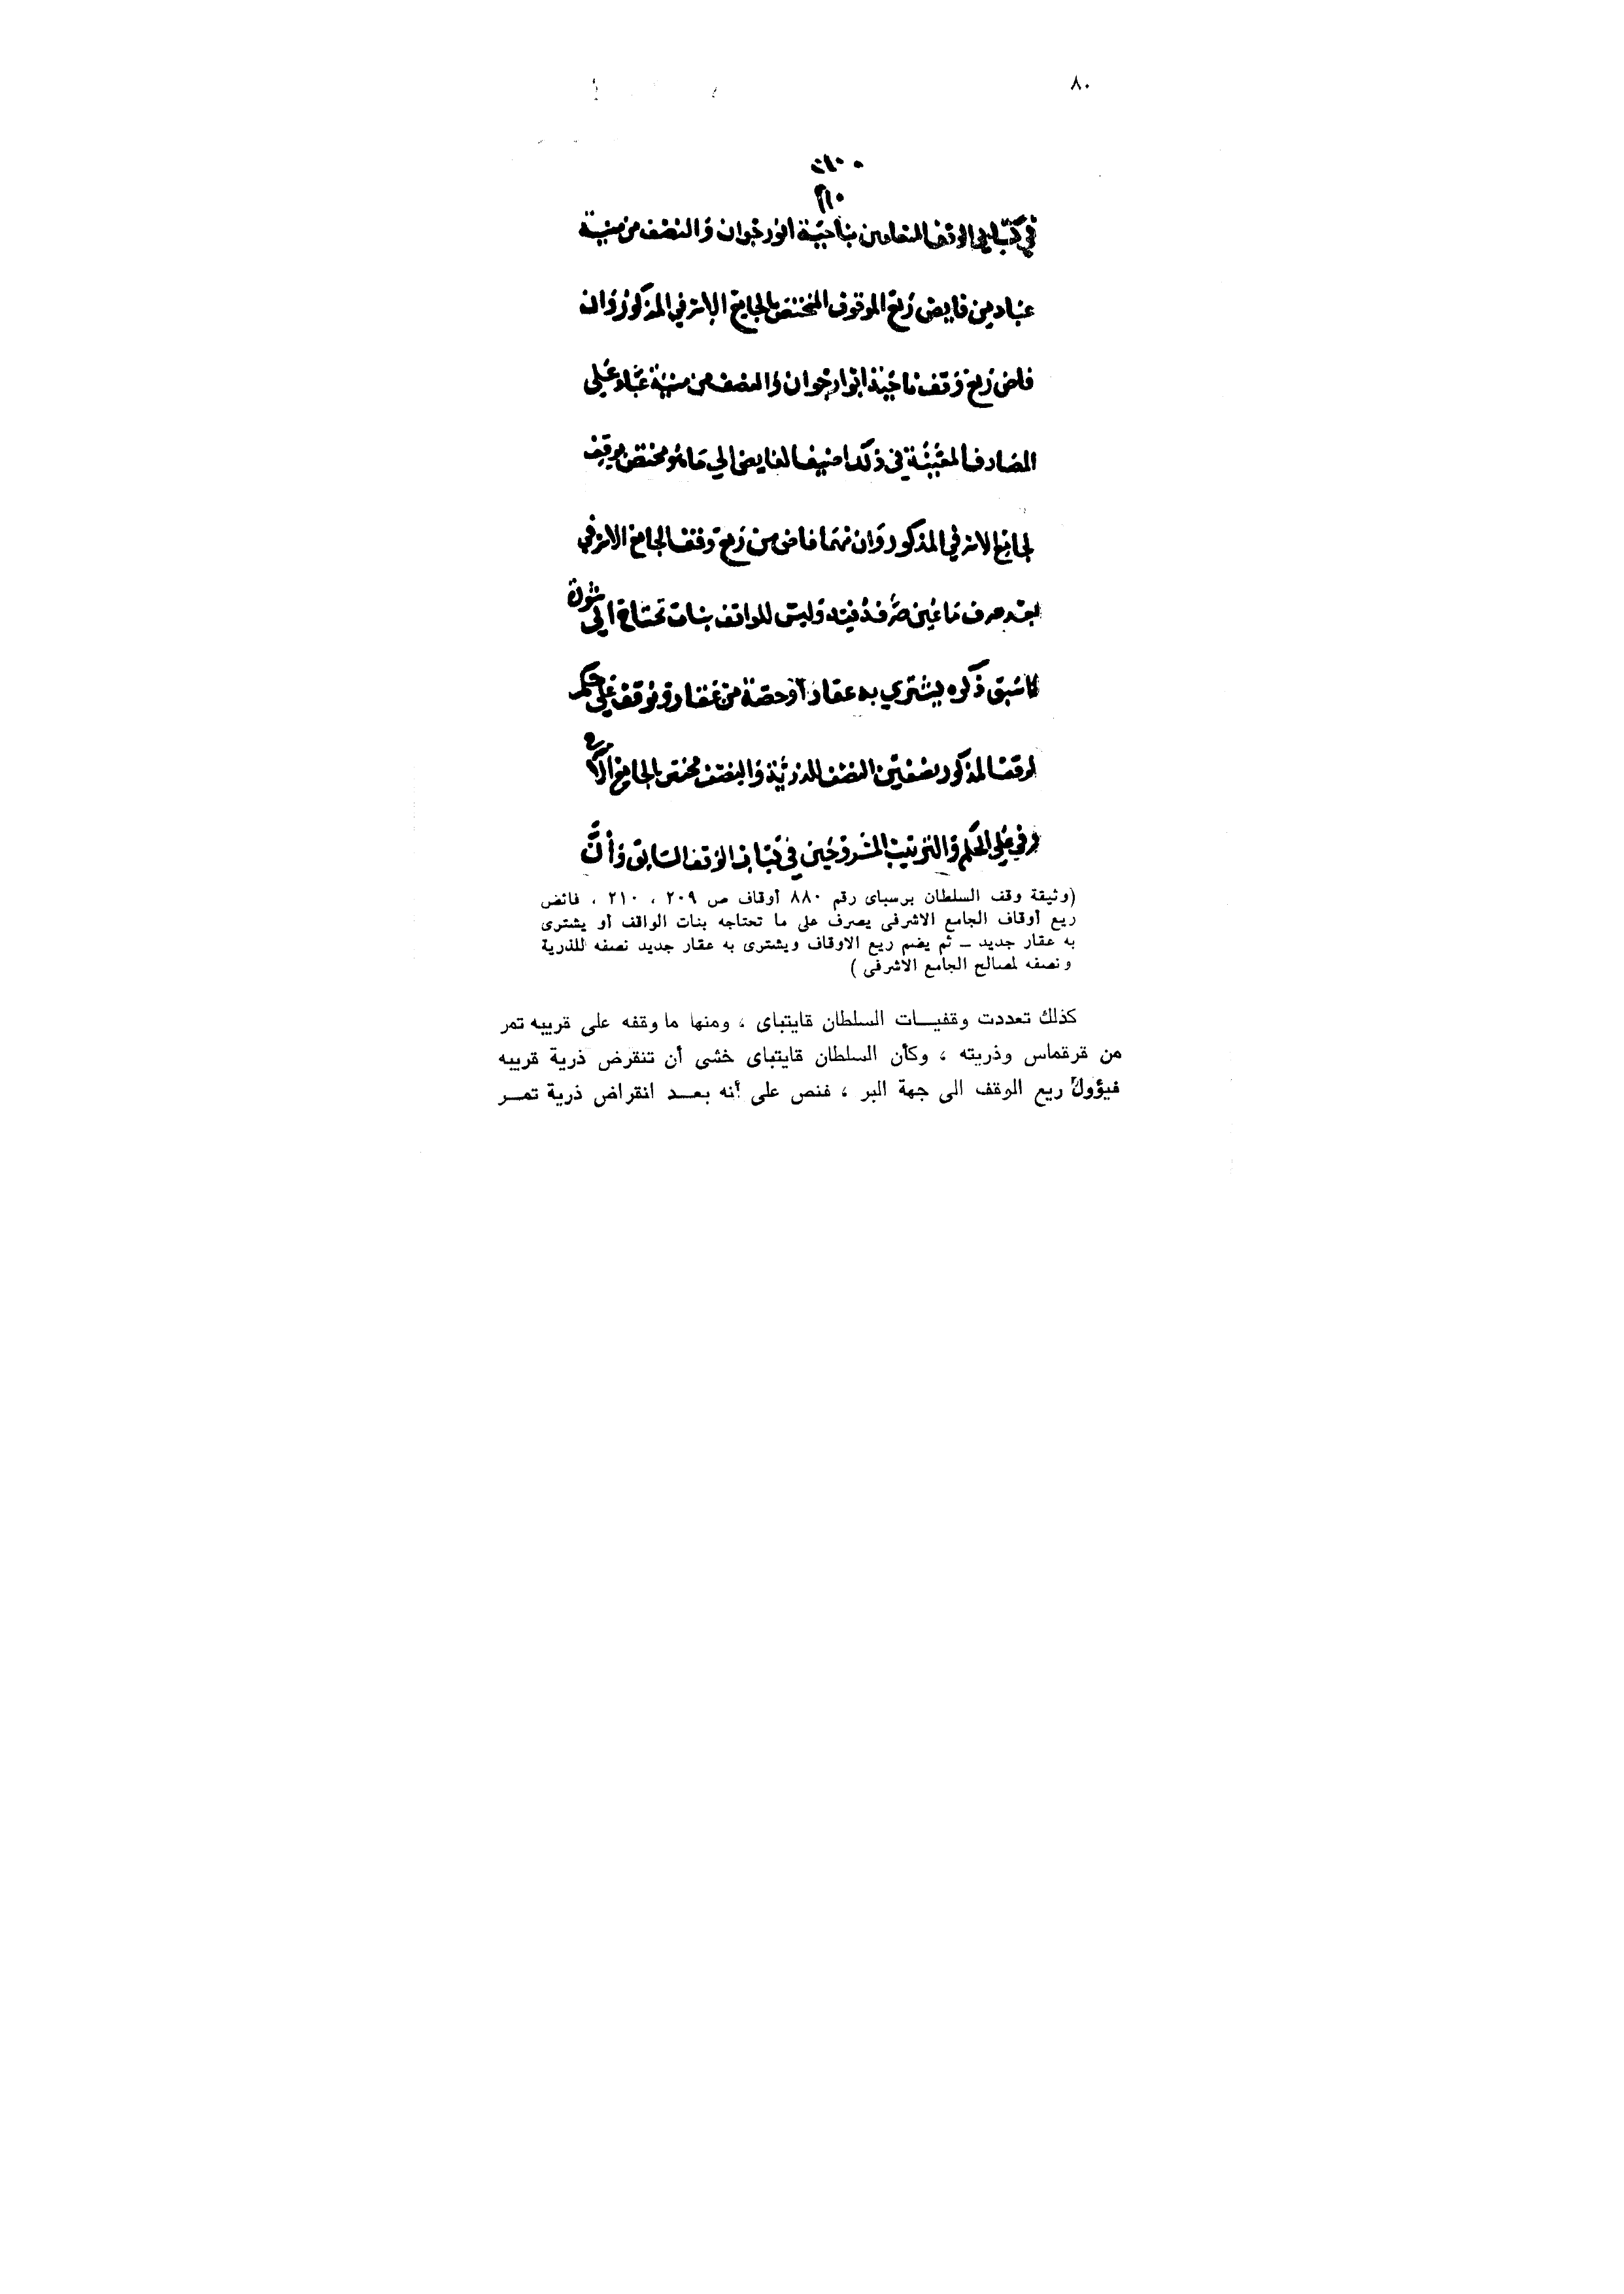 ٨٠
٢١٠
في كتابي الوقف المتعلقين بناحية انورخوان والنصف من منية
عباد من فايض ريع الموقوف المختص بالجامع الاشرفي المذكور وان
فاض ريع وقف ناحية انوارخوان والنصف من منية عباد علي
المصارف المعينة في ذلك اضيف الفايض الي ما هو مختص بوقف
الجامع الاشرفي المذكور وان مهما فاض من ريع وقف الجامع الاشرفي
بعد صرف ما عين صرفه فيه وليس للواقف بنات تحتاج الي مئونة
كما سبق ذكره يشتري به عقار او حصة من عقار ويوقف علي حكم
الوقف المذكور نصفين النصف للذرية والنصف مختص بالجامع
علي الحكم والترتيب المشروحين في كتاب الوقف السابق وأن
(وثيقة وقف السلطان برسباى رقم ٨٨٠ أوقاف ص ٢٠٩ ، ٢١٠ ، فائض
ريع أوقاف الجامع الاشرفى يصرف على ما تحتاجه بنات الواقف أو يشترى
به عقار جديد ــ ثم يضم ريع الاوقاف ويشترى به عقار جديد نصفه للذرية
ونصفه لمصالح الجامع الاشرفى )
كذلك تعددت وقفيــات السلطان قايتباى ، ومنها ما وقفه على قريبه تمر
من قرقماس وذريته ، وكأن السلطان قايتباى خشى أن تنقرض ذرية قريبه
فيؤول ريع الوقف الى جهة البر ، فنص على أنه بعــد انقراض ذرية تمــر